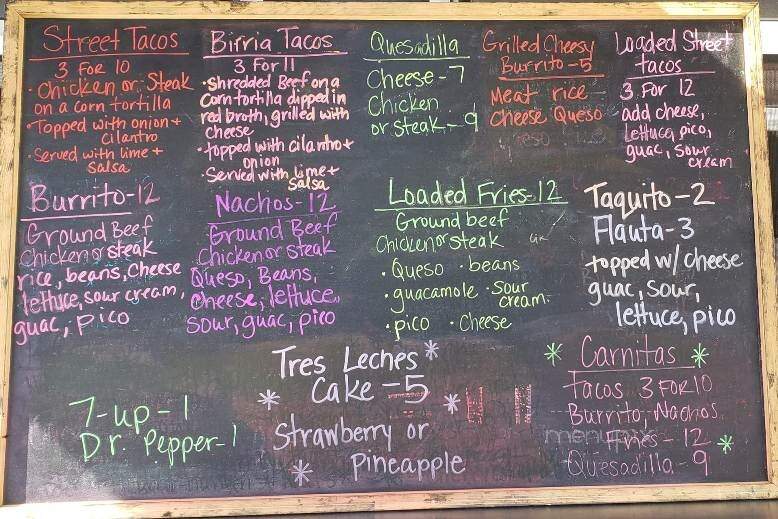 Street Tacos
3 FOR 10
• Chicken or Steak
on a corn tortilla
• Topped with onion +
Cilantro
• Served with lime +
Salsa
Birria Tacos
3 For 11
• Shredded Beef on a
Corn tortilla dipped in
red broth, grilled with
cheese
• topped with cilantro +
onion
• Served with lime +
Salsa
Quesadilla
Cheese - 7
Chicken
or steak - 9
Grilled Cheesy
Burrito - 5
Meat rice
Cheese Queso
Loaded Street
tacos
3 For 12
add cheese,
lettuce, pico,
guac, sour
cream
Burrito - 12
Ground Beef
Chicken or steak
rice, beans, Cheese
lettuce, sour cream,
guac, Pico
Nachos - 12
Ground Beef
Chicken or steak
Queso, Beans,
Cheese, lettuce,
sour, guac, pico
Loaded Fries - 12
Ground beef
Chicken or steak
• Queso • beans
• guacamole • Sour
cream
• pico • Cheese
Taquito - 2
Flauta - 3
topped w/ cheese
guac, sour,
lettuce, pico
7-up - 1
Dr. Pepper - 1
Tres Leches *
* Cake - 5 *
Strawberry or
* Pineapple
* Carnitas *
Tacos 3 FOR 10
Burrito, Nachos
Fries - 12 *
Quesadilla - 9